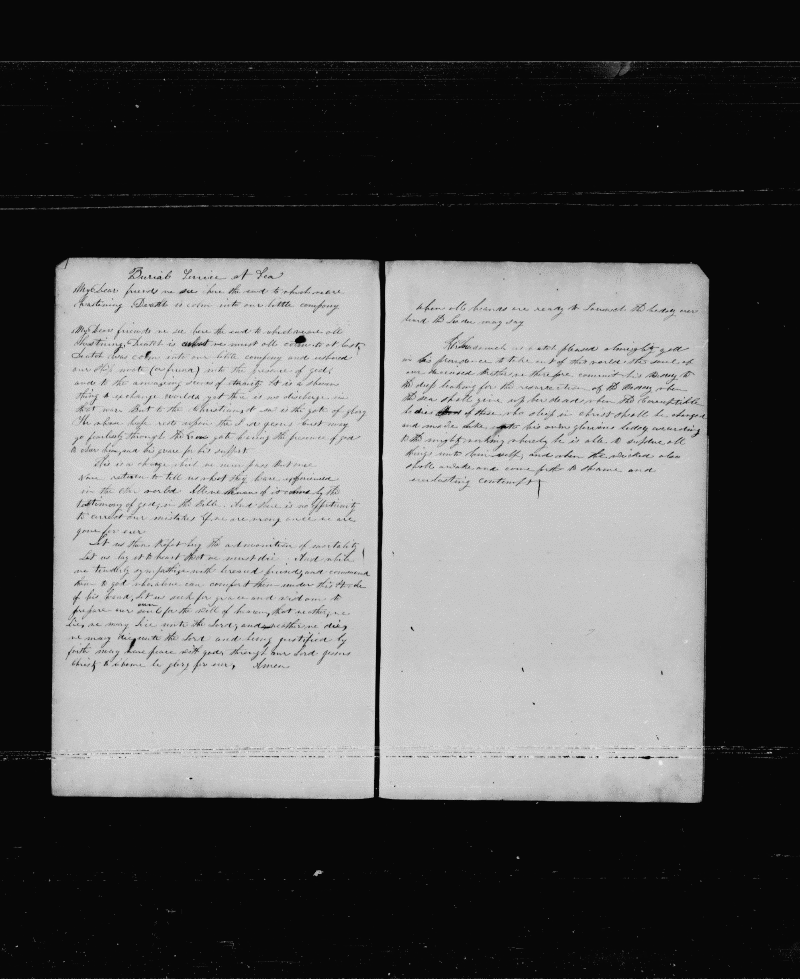 Burial Service at Sea
My dear friends we see here the end to which we are
hastening Death is come into our little company
My dear friends we see here the end to which we are all
hastening, Death is what we must all come to at last,
Death has come into our little company and ushered
our ship mate into the presence of god,
and to the amazing scenes of eternity It is a solemn
thing to exchange worlds yet there is no discharge in
that war But to the Christians it is the gate of glory
He whose hope rests upon the Lord jesus christ may
go fearlessly through the gate having the presence of god
to cheer him, and his grace for his support
This is a change which we must pass But none
have return to tell us what they have experienced
in the other world All we know of it is by the
testimony of god, in the bible. And there is no oppertunity
to correct our mistakes if we are wrong once we are
gone for ever
Let us then profit by the admonition of mortality
Let us lay it to heart that we must die. And while
we tenderly sympathize with bereaved friends, and commend
them to god who alone can comfort them under this stroke
of his hand, let us seek for grace and wisdom to
prepare our own souls for the will of heaven, that whether we
live, we may live unto the Lord, and whether we die,
we may die unto the Lord and being justified by
faith may have peace with god, through our Lord jesus
christ, to whome be glory for ever, Amen
when all hands are ready to Launch the body over
board the Leader may say
Forasmuch as it hath pleased almighty god
in his providence to take out of this world the soul of
our deceased Brother, we therefore commit his Body to
the deep looking for the resurrection of the Body, when
the sea shall give up her dead, when the Corruptible
bodies of those who sleep in christ shall be changed
and made like unto his own glorious body according
to the mighty working whereby he is able to subdue all
things unto him self, and when the wicked also
shall awake and come forth to shame and
everlasting contempt